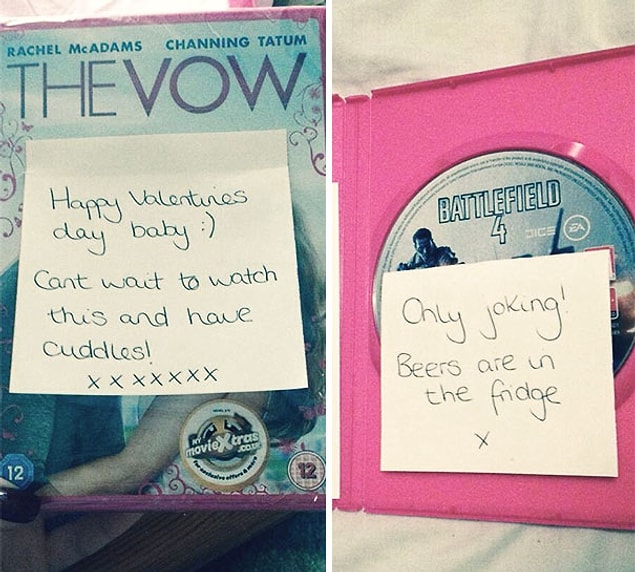 RACHEL McADAMS CHANNING TATUM
THE VOW
Happy Valentines
day baby :)
Cant wait to watch
this and have
cuddles!
x x x x x x x
MY
movieXtras
.co.uk
For exclusive offers & more
12
12
BATTLEFIELD
4
DICE EA
Only joking!
Beers are in
the fridge
x